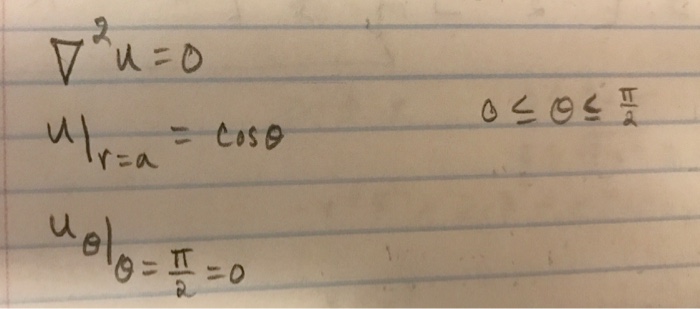 ∇²u = 0
u|r=a = cosθ 0 ≤ θ ≤ π/2
uθ|θ = π/2 = 0